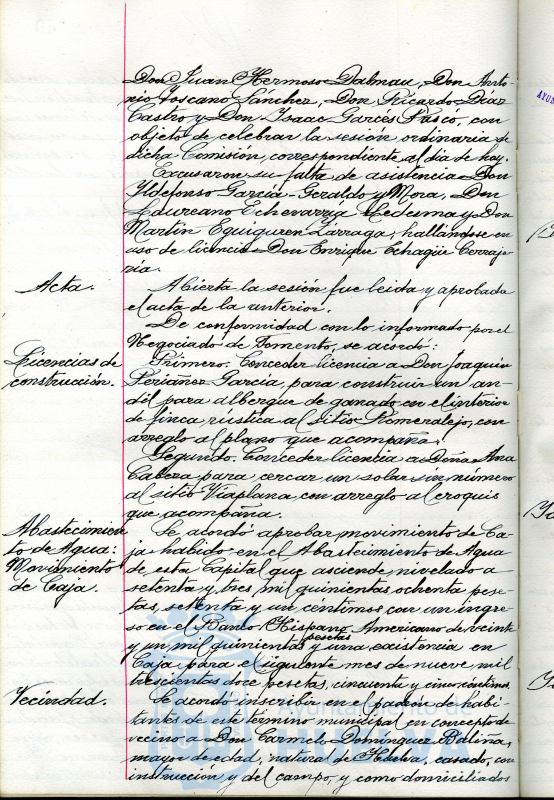 Don Juan Hermoso Dalmau, Don Anto-
nio Toscano Sánchez, Don Ricardo Díaz
Castro y Don Isaac Garcés Pasco, con
objeto de celebrar la sesión ordinaria de
dicha Comisión, correspondiente al día de hoy.
Excusaron su falta de asistencia Don
Ildefonso García-Geraldo y Mora, Don
Laureano Echevarría Ledesma y Don
Martín Eguiguren Lizrraga; hallándose en
uso de licencia Don Enrique Echagüe Cerraje-
ría.
Acta.
Abierta la sesión fue leida y aprobada
el acta de la anterior.
De conformidad con lo informado por el
Negociado de Fomento, se acordó:
Licencias de
construcción.
Primero. Conceder licencia a Don Joaquín
Periañez García, para construir un an-
dél para albergue de ganado en el interior
de finca rústica al sitio Romeralejo, con
arreglo al plano que acompaña.
Segundo. Conceder licencia a Doña Ana
Cabeza para cercar un solar sin número
al sitio Viaplana con arreglo al croquis
que acompaña.
Abastecimien
to de Agua:
Movimiento
de Caja.
Se acordó aprobar movimiento de Ca-
ja habido en el Abastecimiento de Agua
de esta Capital que asciende nivelado a
setenta y tres mil quinientas ochenta pese-
tas, setenta y un centimos con un ingre-
so en el Banco Hispano Americano de veinte
y un mil quinientas pesetas y una existencia en
Caja para el siguiente mes de nueve mil
trescientas doce pesetas, cincuenta y cinco centimos.
Vecindad.
Se acordó inscribir en el padrón de habi-
tantes de este término municipal en concepto de
vecino a Don Carmelo Domínguez Baliñas,
mayor de edad, natural de Huelva, casado, con
instrucción y del campo, y como domiciliados
Ayuntamiento de
HUELVA